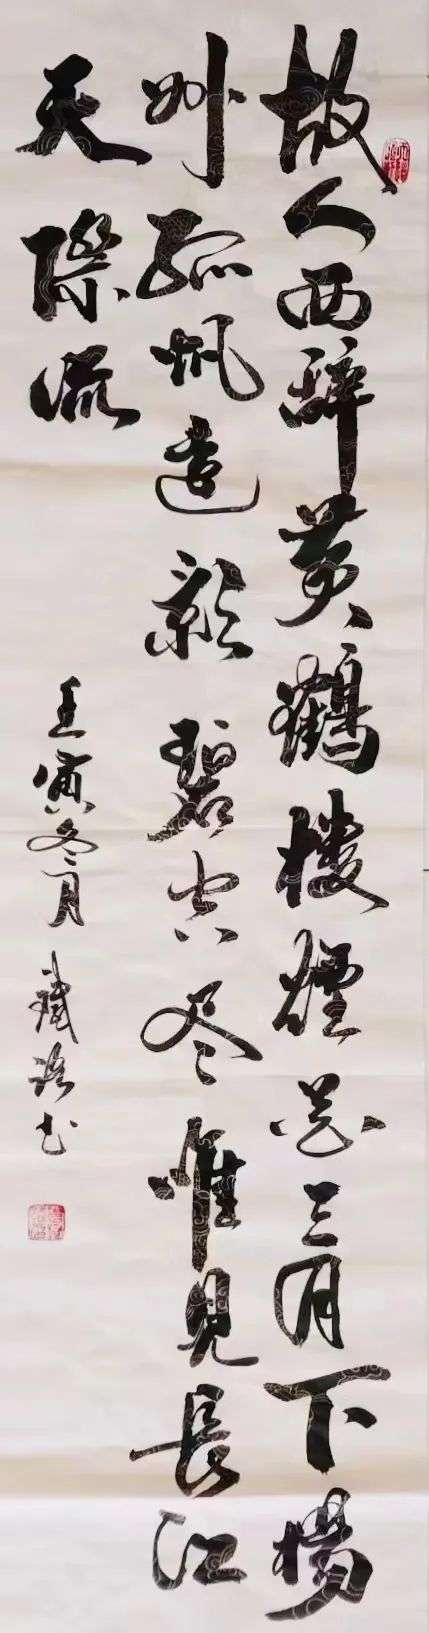 故人西辞黄鹤楼烟花三月下扬
州孤帆远影碧空尽唯见长江
天际流
壬寅冬月 书